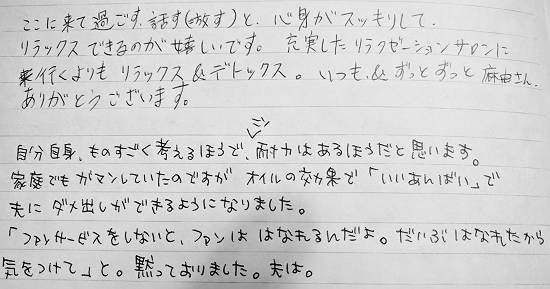 ここに来て過ごす、話す(放す)と、心身がスッキリして、
リラックスできるのが嬉しいです。充実したリラクゼーションサロンに
行くよりもリラックス&デトックス。いつも、&ずっとずっと麻由さん、
ありがとうございます。
ミン
自分自身、ものすごく考えるほうで、耐力はあるほうだと思います。
家庭でもガマンしていたのですがオイルの効果で「いいあんばい」で
夫にダメ出しができるようになりました。
「ファンサービスをしないと、ファンははなれるんだよ。だいぶはなれたから
気をつけて」と。黙っておりました。夫は。